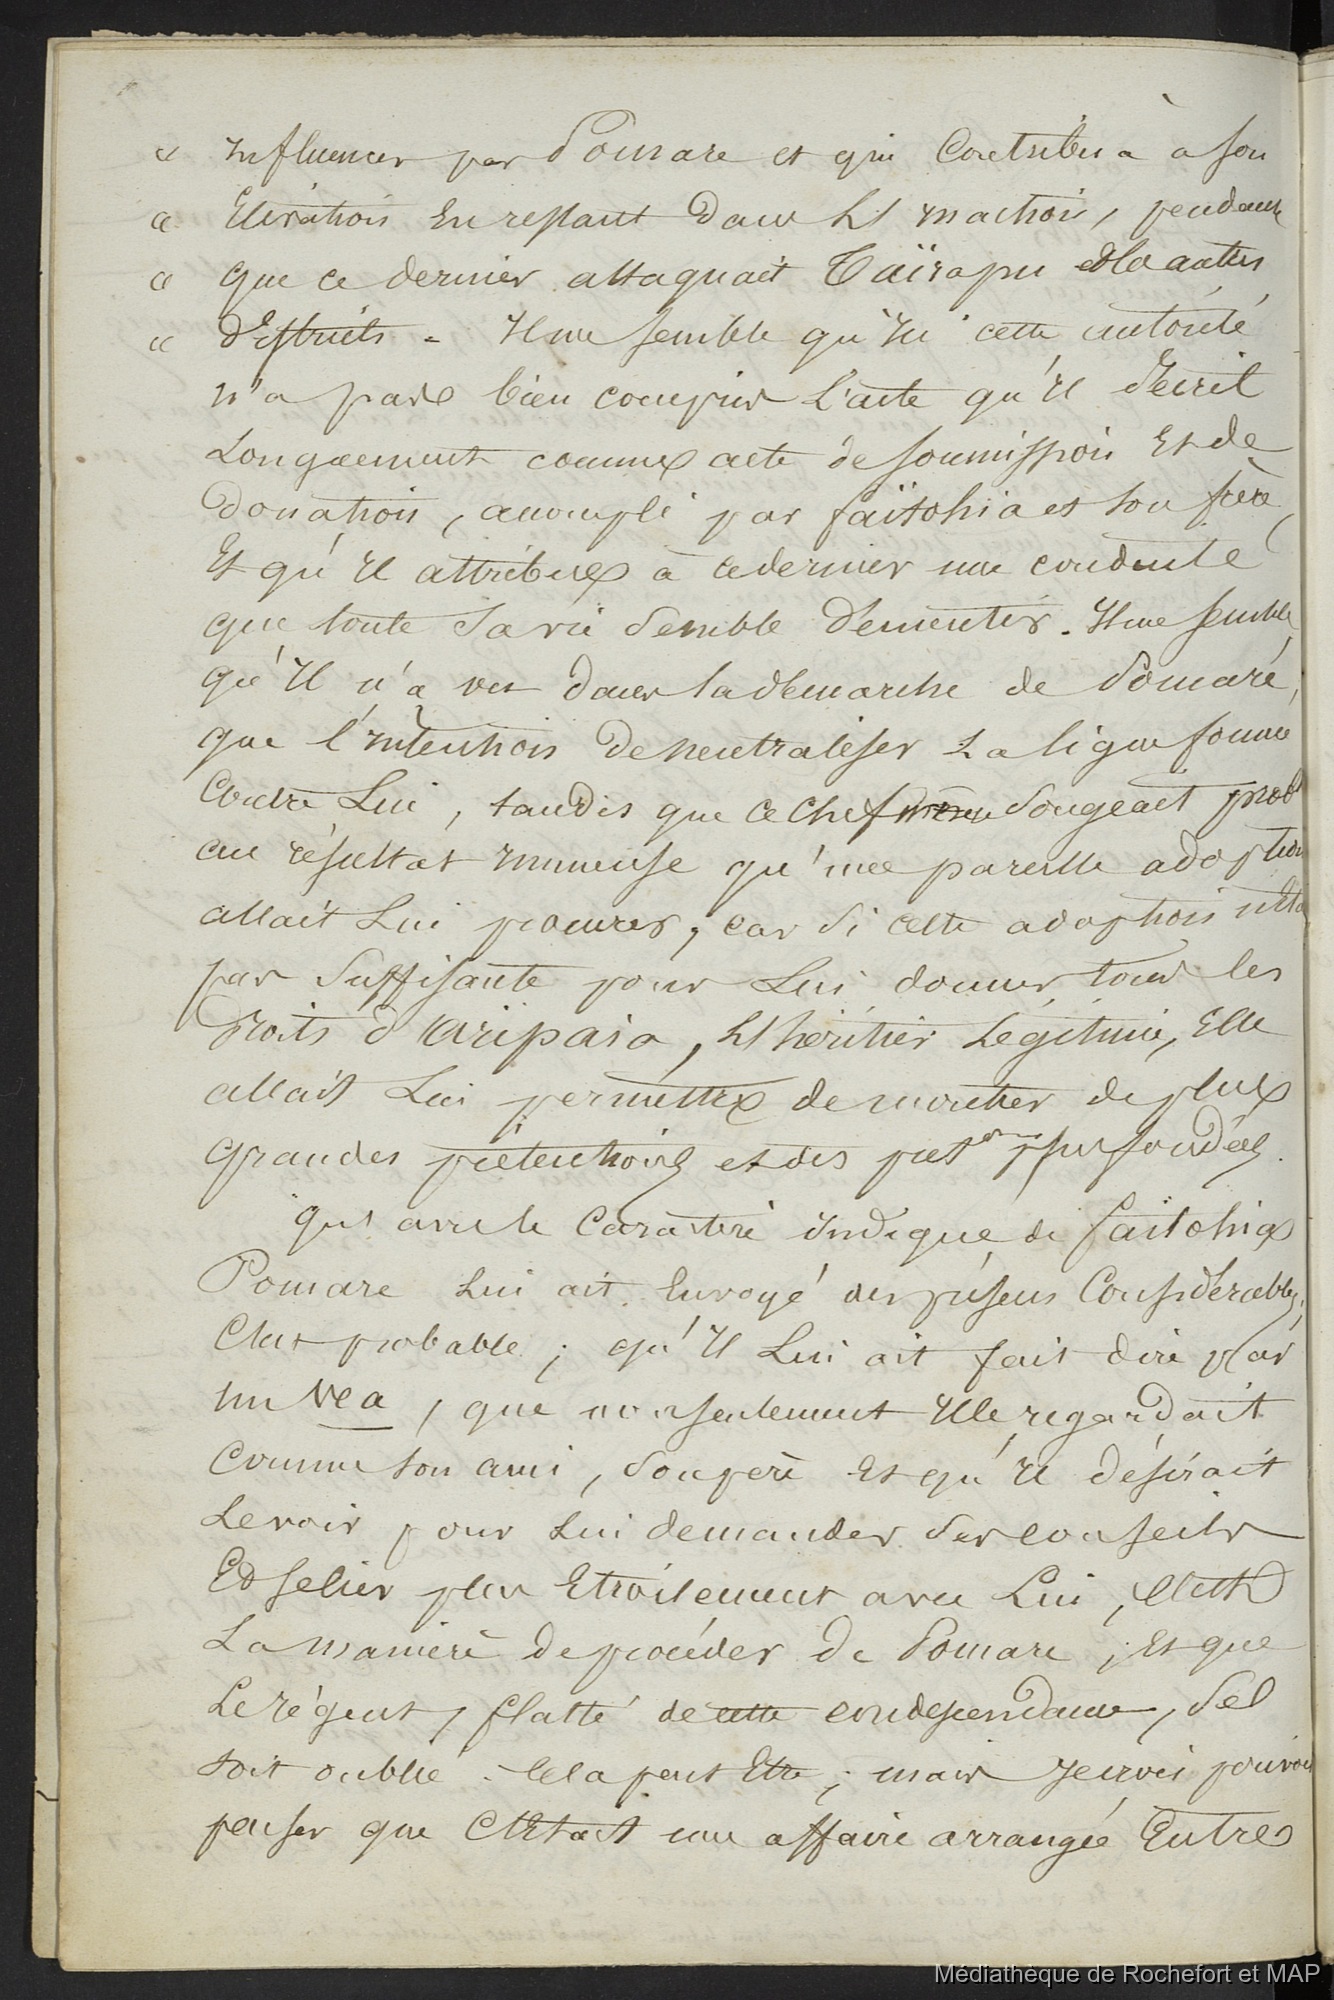 « Influencer par Pomare et qui Contribua à son
« Elévation En restant dans L'Inaction, pendant
« que ce dernier attaquait Taïrapu et les autres
« districts. Il me semble qu'Ici cette autorité
n'a pas bien compris L'acte qu'Il décrit
Longuement comme acte de soumission Et de
donation, accompli par faïtohia et son frère,
Et qu'Il attribue à ce dernier une conduite
que toute sa vie semble démentir. Il me semble
qu'Il n'a vu dans la démarche de Pomaré,
que l'Intention de neutraliser La ligue formée
Contre Lui, tandis que ce chef songeait
au résultat Immense qu'une pareille adoption
allait Lui procurer, car si cette adoption
pas suffisante pour Lui donner tous les
droits d'aripaia, L'héritier Légitime, Elle
allait Lui permettre de montrer de plus
grandes prétentions et des plus fondées.
Qu'avec le Caractère Indiqué de faïtohia
Pomare Lui ait Envoyé des présens Considérables,
C'est probable ; qu'Il Lui ait fait dire par
un Vea, que non seulement Il le regardait
Comme son ami, son père Et qu'Il désirait
Le voir pour Lui demander ses conseils
Et se lier plus Etroitement avec Lui, C'etait
La manière de procéder de Pomare ; Et que
Le régent, flatté de cette condescendance, s'el
soit oublié. Cela peut Etre ; mais Je crois pouvoir
penser que C'Etait une affaire arrangée Entre
Médiathèque de Rochefort et MAP